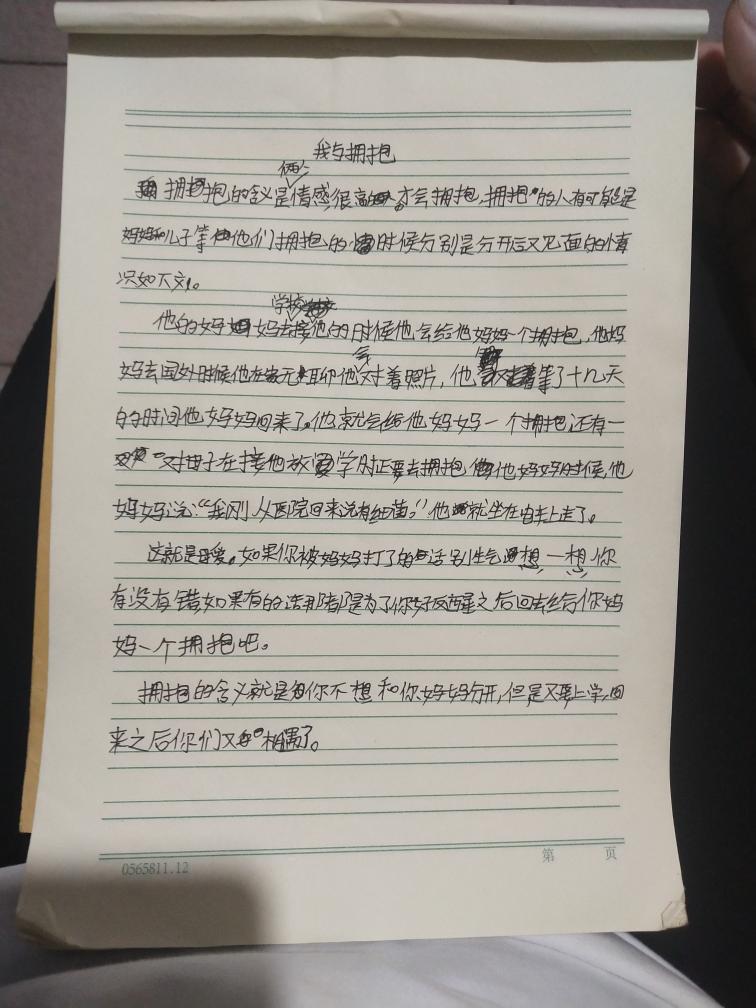 我与拥抱
俩个
拥抱的含义是情感很高才会拥抱,拥抱的人有可能是
妈妈和儿子等他们拥抱的时候分别是分开后又见面的情
况如下文。
学校
他的妈妈去接他的时候他会给他妈妈一个拥抱,他妈
会
妈去国外时候他在家无聊他对着照片,他等了十几天
的时间他妈妈回来了。他就会给他妈妈一个拥抱还有一
对母子在接他放学时正要去拥抱他妈妈时候,他
妈妈说:“我刚从医院回来没有细菌。”他就坐在电车上走了。
这就是母爱。如果你被妈妈打了的话别生气想一想你
有没有错如果有的话那都是为了你好反醒之后回去给你妈
妈一个拥抱吧。
拥抱的含义就是你不想和你妈妈分开,但是又要上学,回
来之后你们又相遇了。
0565811.12
第 页